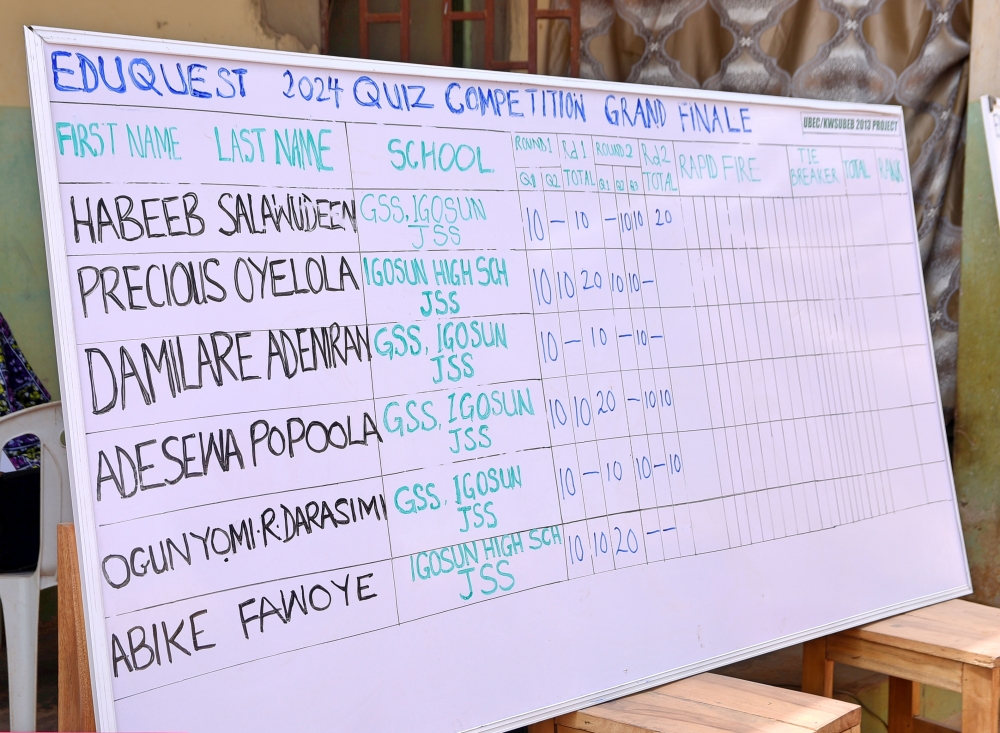 EDUQUEST 2024 QUIZ COMPETITION GRAND FINALE
UBEC/KWSUBEB 2013 PROJECT
FIRST NAME LAST NAME SCHOOL ROUND 1 Rd 1 ROUND 2 Rd 2 RAPID FIRE TIE TOTAL RANK
Q1 Q2 TOTAL Q1 Q2 Q3 TOTAL BREAKER
HABEEB SALAWUDEEN GSS, IGOSUN 10 - 10 - 10 10 20
JSS
PRECIOUS OYELOLA IGOSUN HIGH SCH 10 10 20 10 10 -
JSS
DAMILARE ADENIRAN GSS, IGOSUN 10 - 10 - 10 -
JSS
ADESEWA POPOOLA GSS, IGOSUN 10 10 20 - 10 10
JSS
OGUNYOMI.R.DARASIMI GSS, IGOSUN 10 - 10 10 - 10
JSS
ABIKE FAWOYE IGOSUN HIGH SCH 10 10 20 - -
JSS